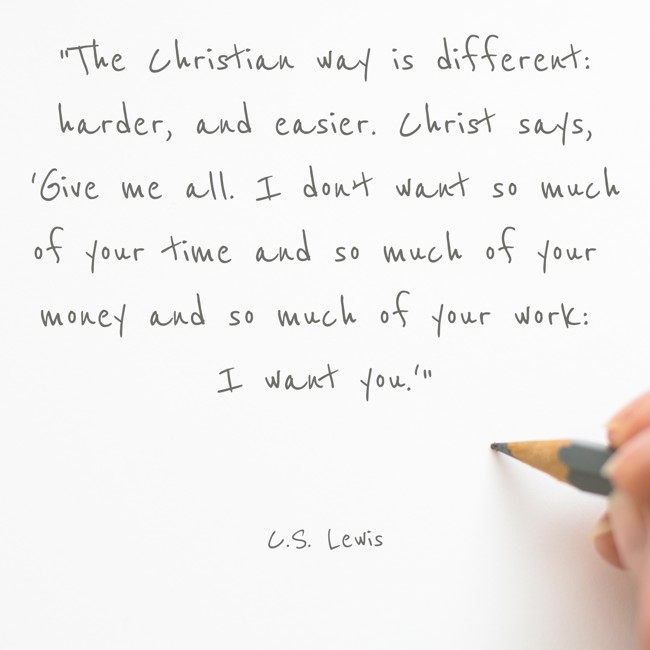 "The Christian way is different:
harder, and easier. Christ says,
'Give me all. I don't want so much
of your time and so much of your
money and so much of your work:
I want you.'"
C.S. Lewis